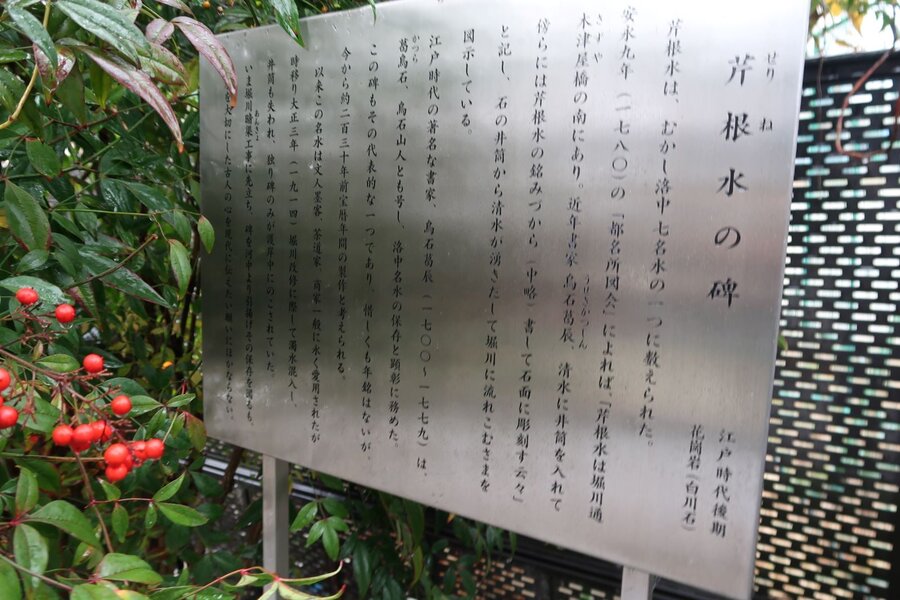 芹根水の碑
せりね
江戸時代後期
花崗岩(白川石)
芹根水は、むかし洛中七名水の一つに数えられた。
安永九年(一七八〇)の『都名所図会』によれば、「芹根水は堀川通
木津屋橋の南にあり。近年書家 烏石葛辰、清水に井筒を入れて
きずや
うせきかつしん
傍らには芹根水の銘みづから(中略)書して石面に彫刻す云々」
と記し、石の井筒から清水が湧きだして堀川に流れこむさまを
図示している。
江戸時代の著名な書家、烏石葛辰(一七〇〇〜一七七九)は、
葛烏石、烏石山人とも号し、洛中名水の保存と顕彰に務めた。
かつら
この碑もその代表的な一つであり、惜しくも年銘はないが、
今から約二百三十年前宝暦年間の製作と考えられる。
以来この名水は文人墨客、茶道家、商家一般に永く愛用されたが
時移り大正三年(一九一四)堀川改修に際して濁水混入し、
井筒も失われ、独り碑のみが護岸中にのこされていた。
いま堀川暗渠工事に先立ち、碑を河中より引揚げその保存を図るも、
あんきょ
大切にした古人の心を現代に伝えたい願いにほかならない。